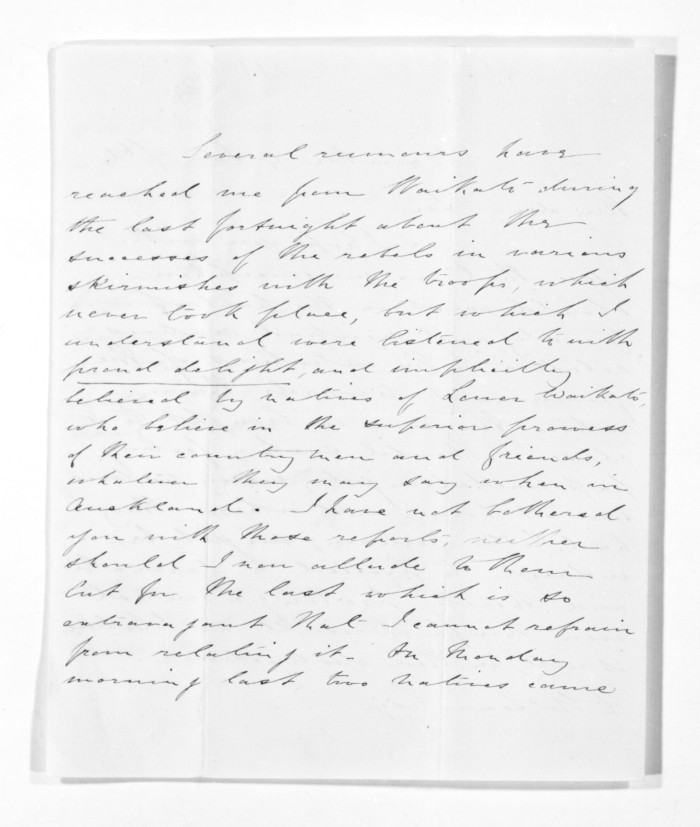 Several rumours have
reached me from Waikato during
the last fortnight about the
successes of the rebels in various
skirmishes with the troops, which
never took place, but which I
understand were listened to with
proud delight, and implicitly
believed by natives of Lower Waikato,
who believe in the superior prowess
of their countrymen and friends,
whatever they may say when in
Auckland. I have not bothered
you with those reports, neither
should I now allude to them
but for the last which is so
extravagant that I cannot refrain
from relating it. On Monday
morning last two natives came